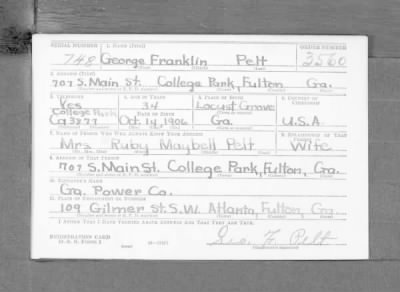 SERIAL NUMBER 1. NAME (Print) ORDER NUMBER
748 George Franklin Pelt 3560
(First) (Middle) (Last)
2. ADDRESS (Print)
707 S. Main St. College Park, Fulton Ga.
3. TELEPHONE 4. AGE IN YEARS 5. PLACE OF BIRTH 6. COUNTRY OF CITIZENSHIP
Yes 34 Locust Grove
College Park DATE OF BIRTH
Ca 3277 Oct. 14, 1906 Ga. U.S.A.
7. NAME OF PERSON WHO WILL ALWAYS KNOW YOUR ADDRESS 8. RELATIONSHIP OF THAT PERSON
Mrs. Ruby Maybell Pelt Wife
9. ADDRESS OF THAT PERSON
707 S. Main St. College Park, Fulton, Ga.
10. EMPLOYER'S NAME
Ga. Power Co.
11. PLACE OF EMPLOYMENT OR BUSINESS
109 Gilmer St. S.W. Atlanta, Fulton Ga.
I AFFIRM THAT I HAVE VERIFIED ABOVE ANSWERS AND THAT THEY ARE TRUE.
REGISTRATION CARD
D. S. S. FORM 1
Geo. F. Pelt